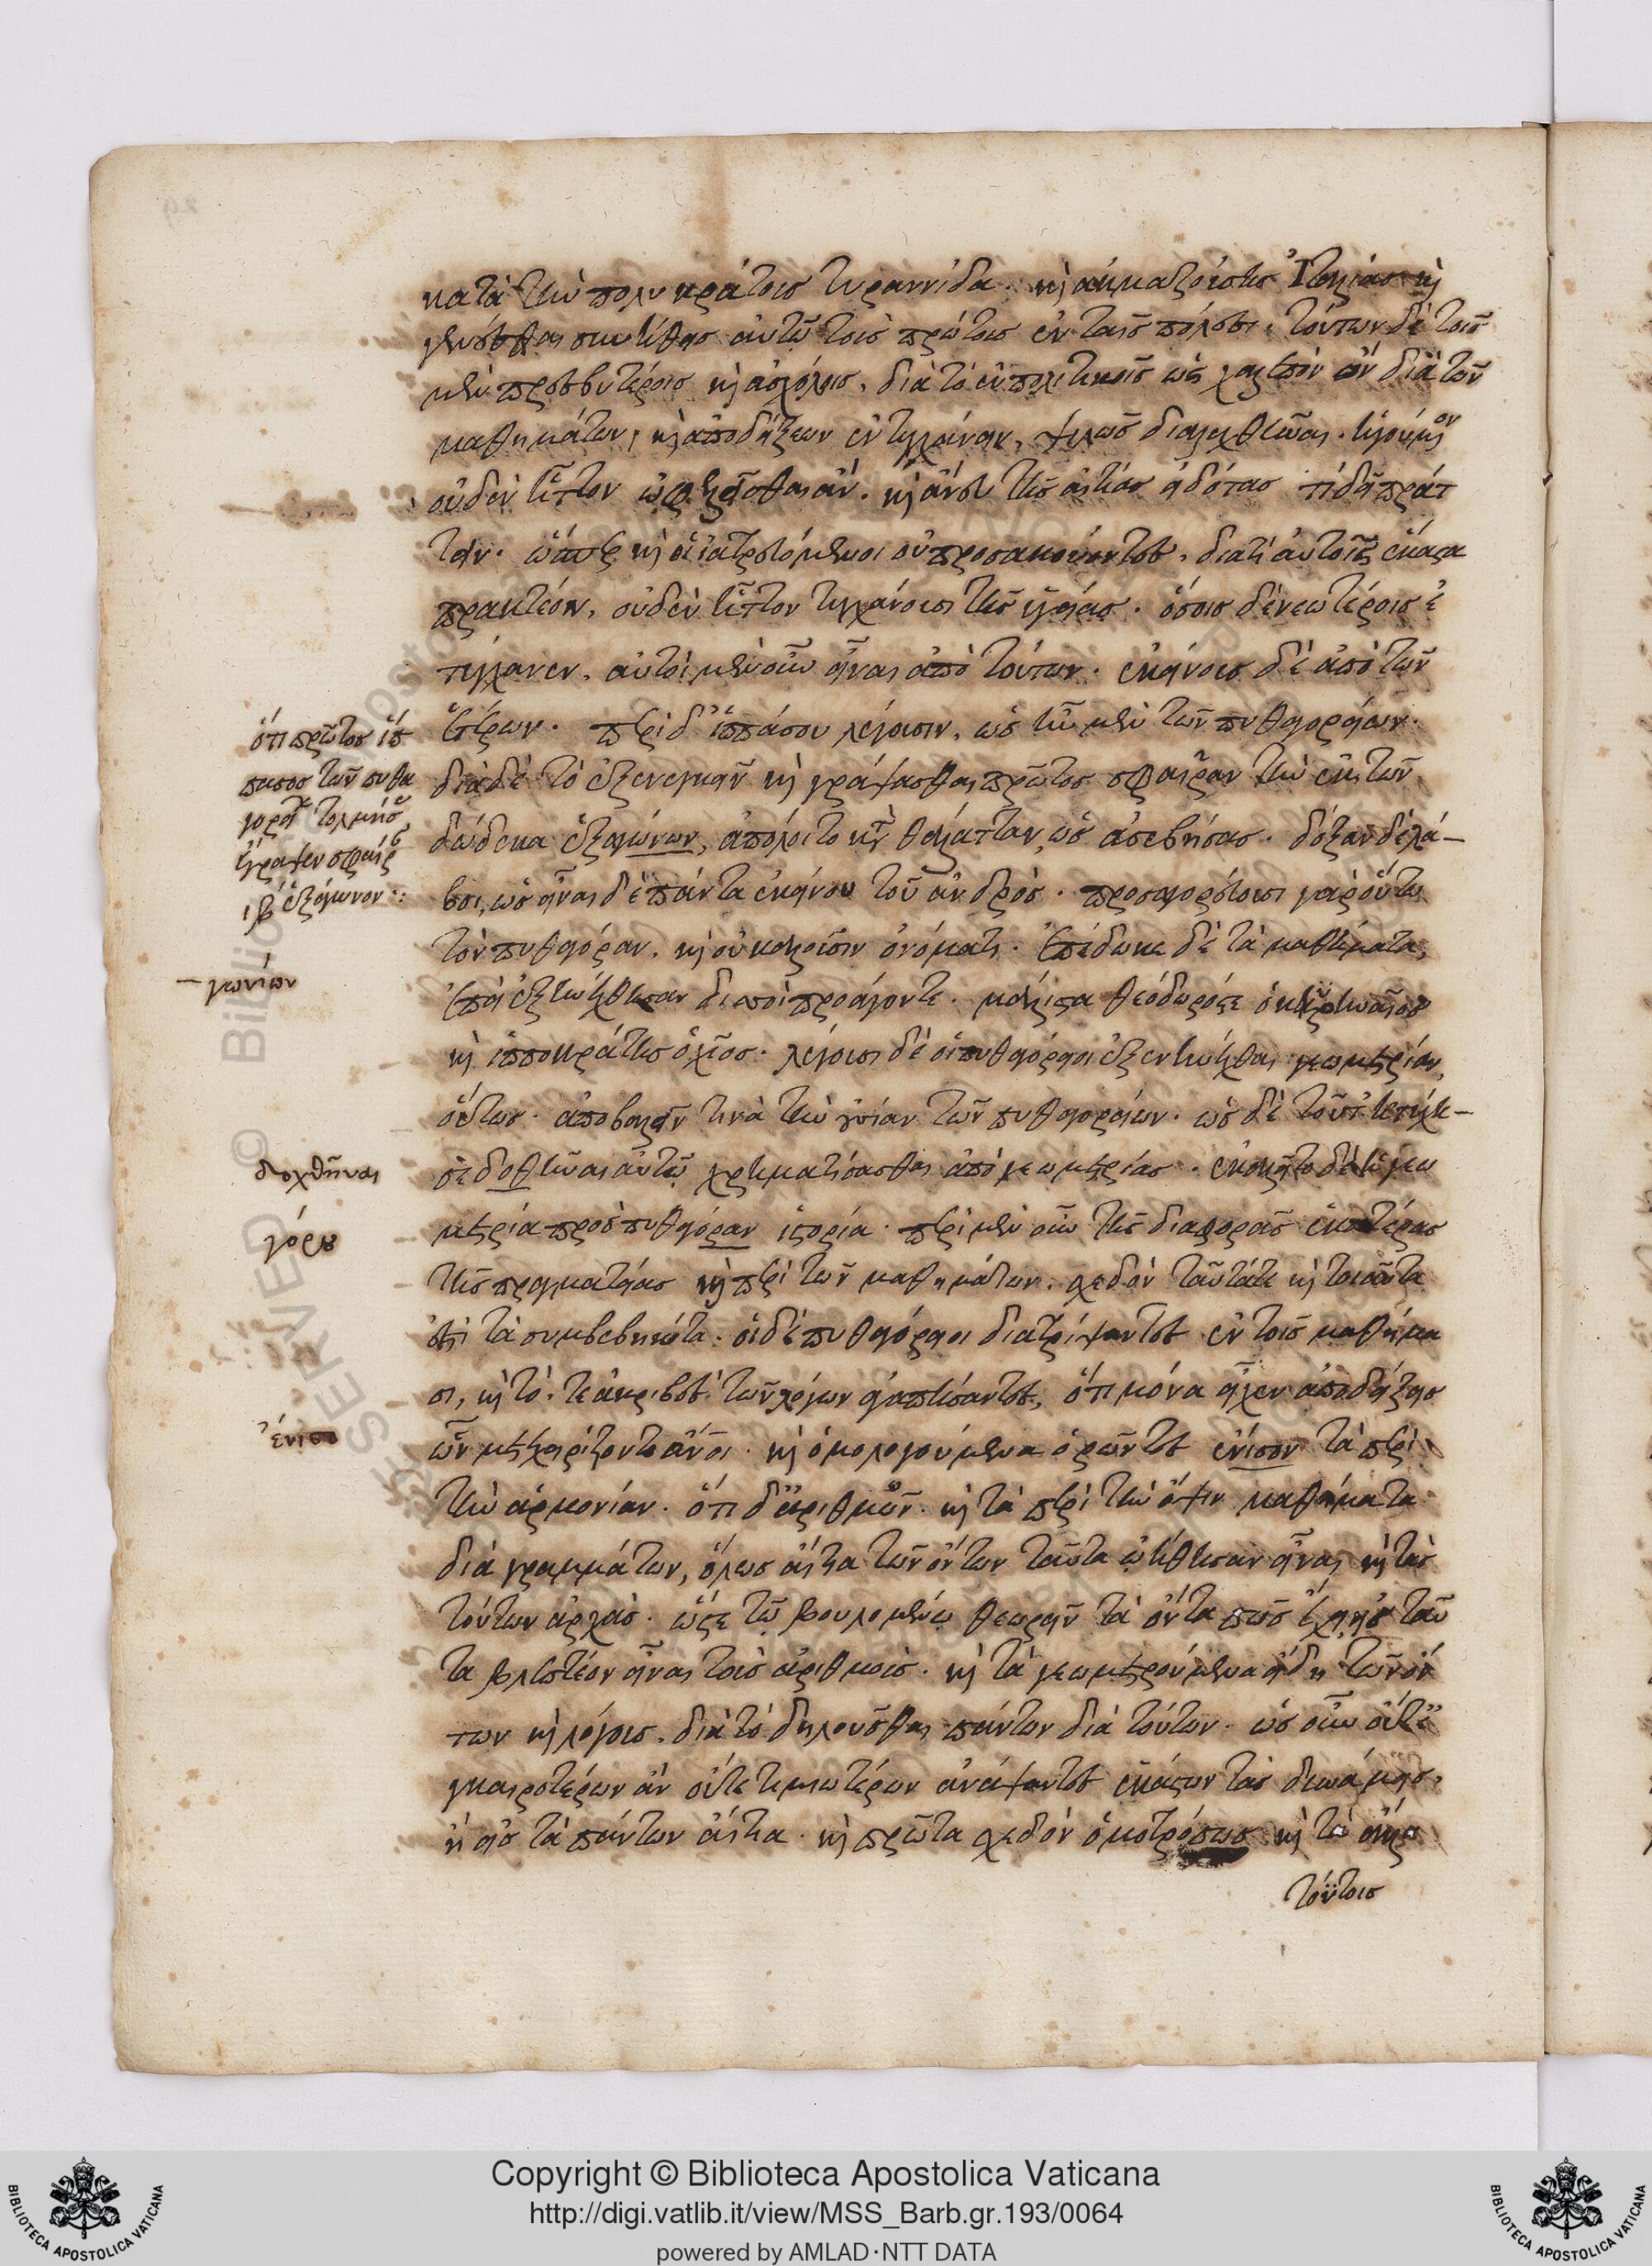 κατὰ τὴν πολυκράτους τυραννίδα. καὶ ἀκμαζούσης Ἰταλίας καὶ
γενέσθαι συνήθεις αὐτῷ τοὺς πρώτους ἐν ταῖς πόλεσι. τούτων δὲ τοῖς
μὲν πρεσβυτέροις καὶ ἀσχόλοις, διὰ τὸ ἐν πολιτικοῖς ὡς χαλεπὸν ὂν διὰ τῶν
μαθημάτων, καὶ ἀποδείξεων ἐντυγχάνειν, ψιλῶς διαλεχθῆναι. ἡγούμενον
οὐδὲν ἧττον ὠφελεῖσθαι ἂν. καὶ ἄνευ τῆς αἰτίας εἰδότας τί δεῖ πράτ
τειν. ὥσπερ καὶ οἱ ἰατρευόμενοι οὐ προσακούοντες, διατί αὐτοῖς ἕκαστα
πρακτέον, οὐδὲν ἧττον τυγχάνουσι τῆς ὑγείας. ὅσοις δὲ νεωτέροις ἐ
τύγχανεν. αὐτοὶ μὲν οὖν εἶναι ἀπὸ τούτων. ἐκείνους δὲ ἀπὸ τῶν
ἑτέρων. περὶ δ' ἱππάσου λέγουσιν, ὡς ἦν μὲν τῶν πυθαγορείων.
διὰ δὲ τὸ ἐξενεγκεῖν καὶ γράψασθαι πρῶτος σφαῖραν τὴν ἐκ τῶν
δώδεκα ἑξαγώνων, ἀπόλοιτο κατὰ θάλατταν, ὡς ἀσεβήσας. δόξαν δὲ λά-
βοι, ὡς εἶναι δὲ πάντα ἐκείνου τοῦ ἀνδρὸς. προσαγορεύουσι γὰρ οὕτω
τὸν πυθαγόραν. καὶ οὐ καλοῦσιν ὀνόματι. ἐπέδωκε δὲ τὰ μαθήματα,
ἐπεὶ ἐξηνέχθησαν δισσοὶ προάγοντε. μάλιστα θεόδωρός τε ὁ κυρηναῖος
καὶ ἱπποκράτης ὁ χῖος. λέγουσι δὲ οἱ πυθαγόρειοι ἐξενηνέχθαι γεωμετρίαν,
οὕτως. ἀποβαλεῖν τινὰ τὴν οὐσίαν τῶν πυθαγορείων. ὡς δὲ τοῦτ' ἠτύχη-
σε δοθῆναι αὐτῷ χρηματίσασθαι ἀπὸ γεωμετρίας. ἐκαλεῖτο δὲ ἡ γεω
μετρία πρὸς πυθαγόραν ἱστορία. περὶ μὲν οὖν τῆς διαφορᾶς ἑκατέρας
τῆς πραγματείας καὶ περὶ τῶν μαθημάτων. σχεδὸν ταῦτά τε καὶ τοιαῦτα
ἐστι τὰ συμβεβηκότα. οἱ δὲ πυθαγόρειοι διατρίψαντες ἐν τοῖς μαθήμα
σι, καὶ τό. τε ἀκριβὲς τῶν λόγων ἀγαπήσαντες, ὅτι μόνα εἶχεν ἀποδείξεις
ὧν μετεχειρίζοντο ἄνθρωποι. καὶ ὁμολογούμενα ὁρῶντες ἐνίσον τὰ περὶ
τὴν ἁρμονίαν. ὅτι δ' ἀριθμῶν. καὶ τὰ περὶ τὴν ὄψιν μαθήματα
διὰ γραμμάτων, ὅλως αἴτια τῶν ὄντων ταῦτα ᾠήθησαν εἶναι καὶ τὰς
τούτων ἀρχὰς. ὥστε τῷ βουλομένῳ θεωρεῖν τὰ ὄντα πῶς ἔχει, εἰς ταῦ
τα βλεπτέον εἶναι τοὺς ἀριθμοὺς. καὶ τὰ γεωμετρούμενα εἴδη τῶν ὄν
των καὶ λόγους. διὰ τὸ δηλοῦσθαι πάντων διὰ τούτων. ὡς οὖν οὔτε
γκαιροτέρων ἂν οὔτε τιμιωτέρων ἀνάψαντες ἑκάστων τὰς δυνάμεις.
ἢ εἰς τὰ πάντων αἴτια. καὶ πρῶτα σχεδὸν ὁμοτρόπως καὶ τὰ ἄλλα
τούτοις
ὅτι πρῶτος ἵπ
πασος τῶν πυθα
γορεί τολμήσ
ἔγραψεν σφαῖρ
ιβ ἑξάγωνον:
-γωνίων
διαχθῆναι
γόρου
ἐνίσο
Copyright © Biblioteca Apostolica Vaticana
http://digi.vatlib.it/view/MSS_Barb.gr.193/0064
powered by AMLAD·NTT DATA